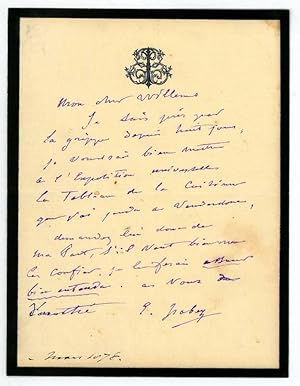 Mon cher Willems
Je suis pris par
la grippe depuis huit jours,
je voudrais bien mettre
à l'Exposition universelle
le Tableau de la Cuisine
que j'ai vendu a
demandez lui donc de
ma Part, s'il veut bien me
le confier, je le ferais
bien entendu. a Vous
E. Isabey
Mars 1878.